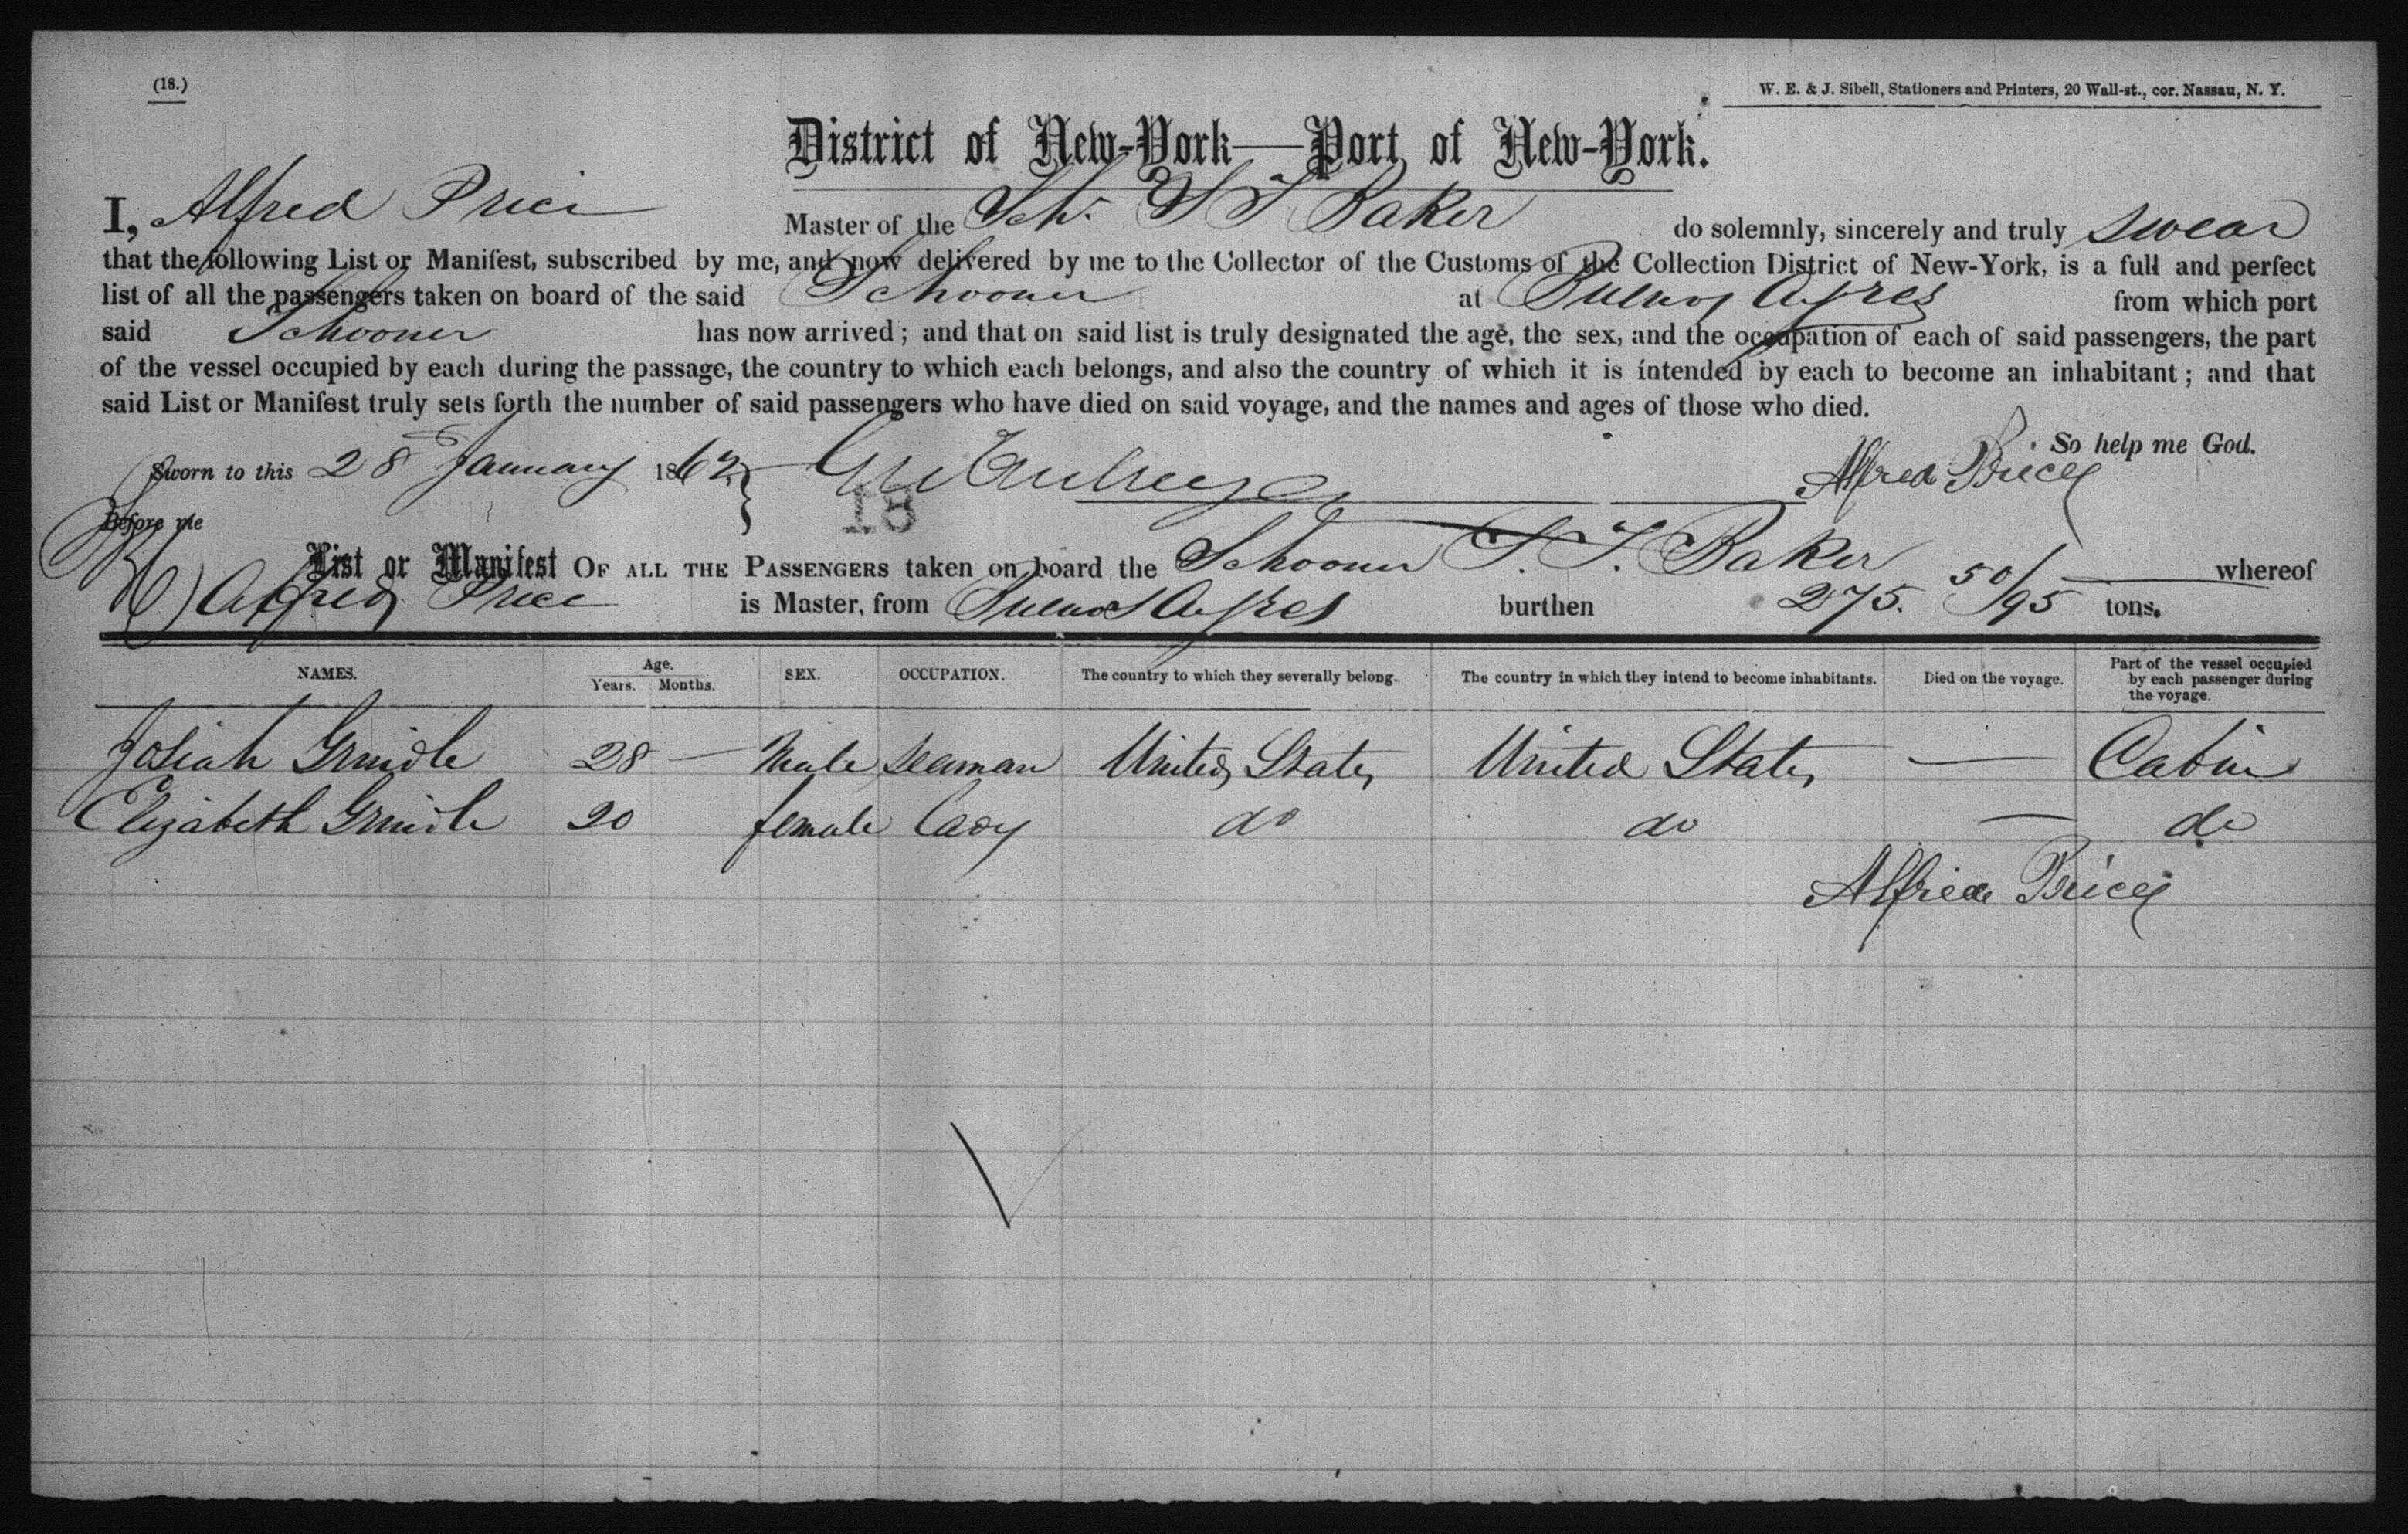 (18.)
W. E. & J. Sibell, Stationers and Printers, 20 Wall-st., cor. Nassau, N. Y.
District of New-York—Port of New-York.
I, Alfred Price Master of the Schr. S T Baker do solemnly, sincerely and truly swear
that the following List or Manifest, subscribed by me, and now delivered by me to the Collector of the Customs of the Collection District of New-York, is a full and perfect
list of all the passengers taken on board of the said Schooner at Buenos Ayres from which port
said Schooner has now arrived; and that on said list is truly designated the age, the sex, and the occupation of each of said passengers, the part
of the vessel occupied by each during the passage, the country to which each belongs, and also the country of which it is intended by each to become an inhabitant; and that
said List or Manifest truly sets forth the number of said passengers who have died on said voyage, and the names and ages of those who died.
So help me God.
Sworn to this 28 January 1862 Alfred Price
Before me
18
List or Manifest OF ALL THE PASSENGERS taken on board the Schooner S. T. Baker whereof
Alfred Price is Master, from Buenos Ayres burthen 275. 50/95 tons.
NAMES. Age. Years. Months. SEX. OCCUPATION. The country to which they severally belong. The country in which they intend to become inhabitants. Died on the voyage. Part of the vessel occupied by each passenger during the voyage.
Josiah Grindle 28 — Male seaman United States United States — Cabin
Elizabeth Grindle 20 female Lady do do — do
Alfred Price